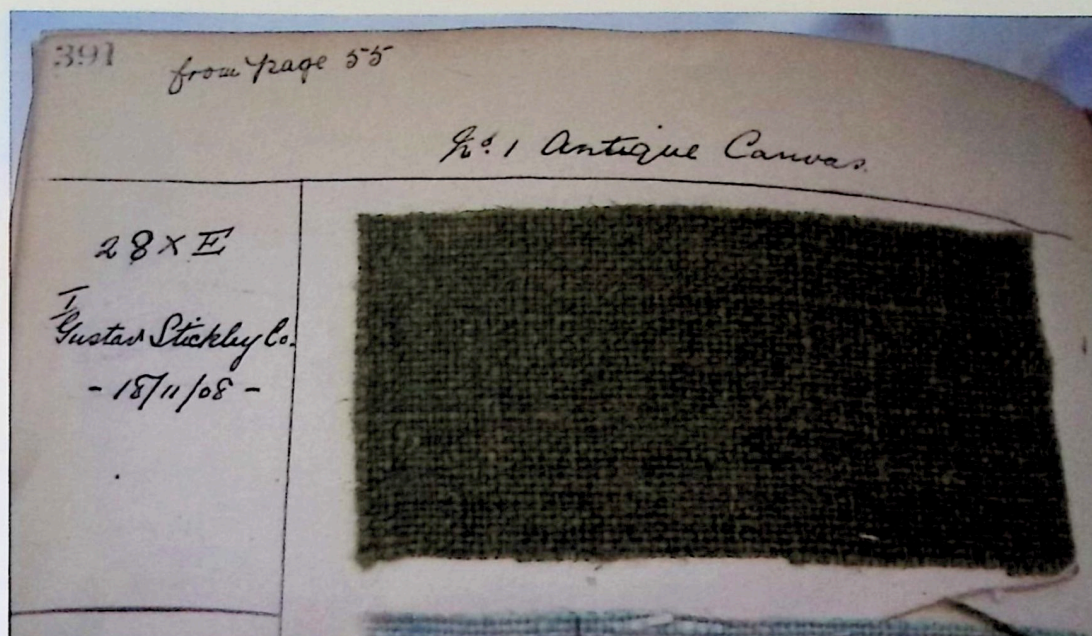 391
from page 55
No. 1 Antique Canvas.
28 x E
I
Gustav Stickley Co.
- 18/11/08 -